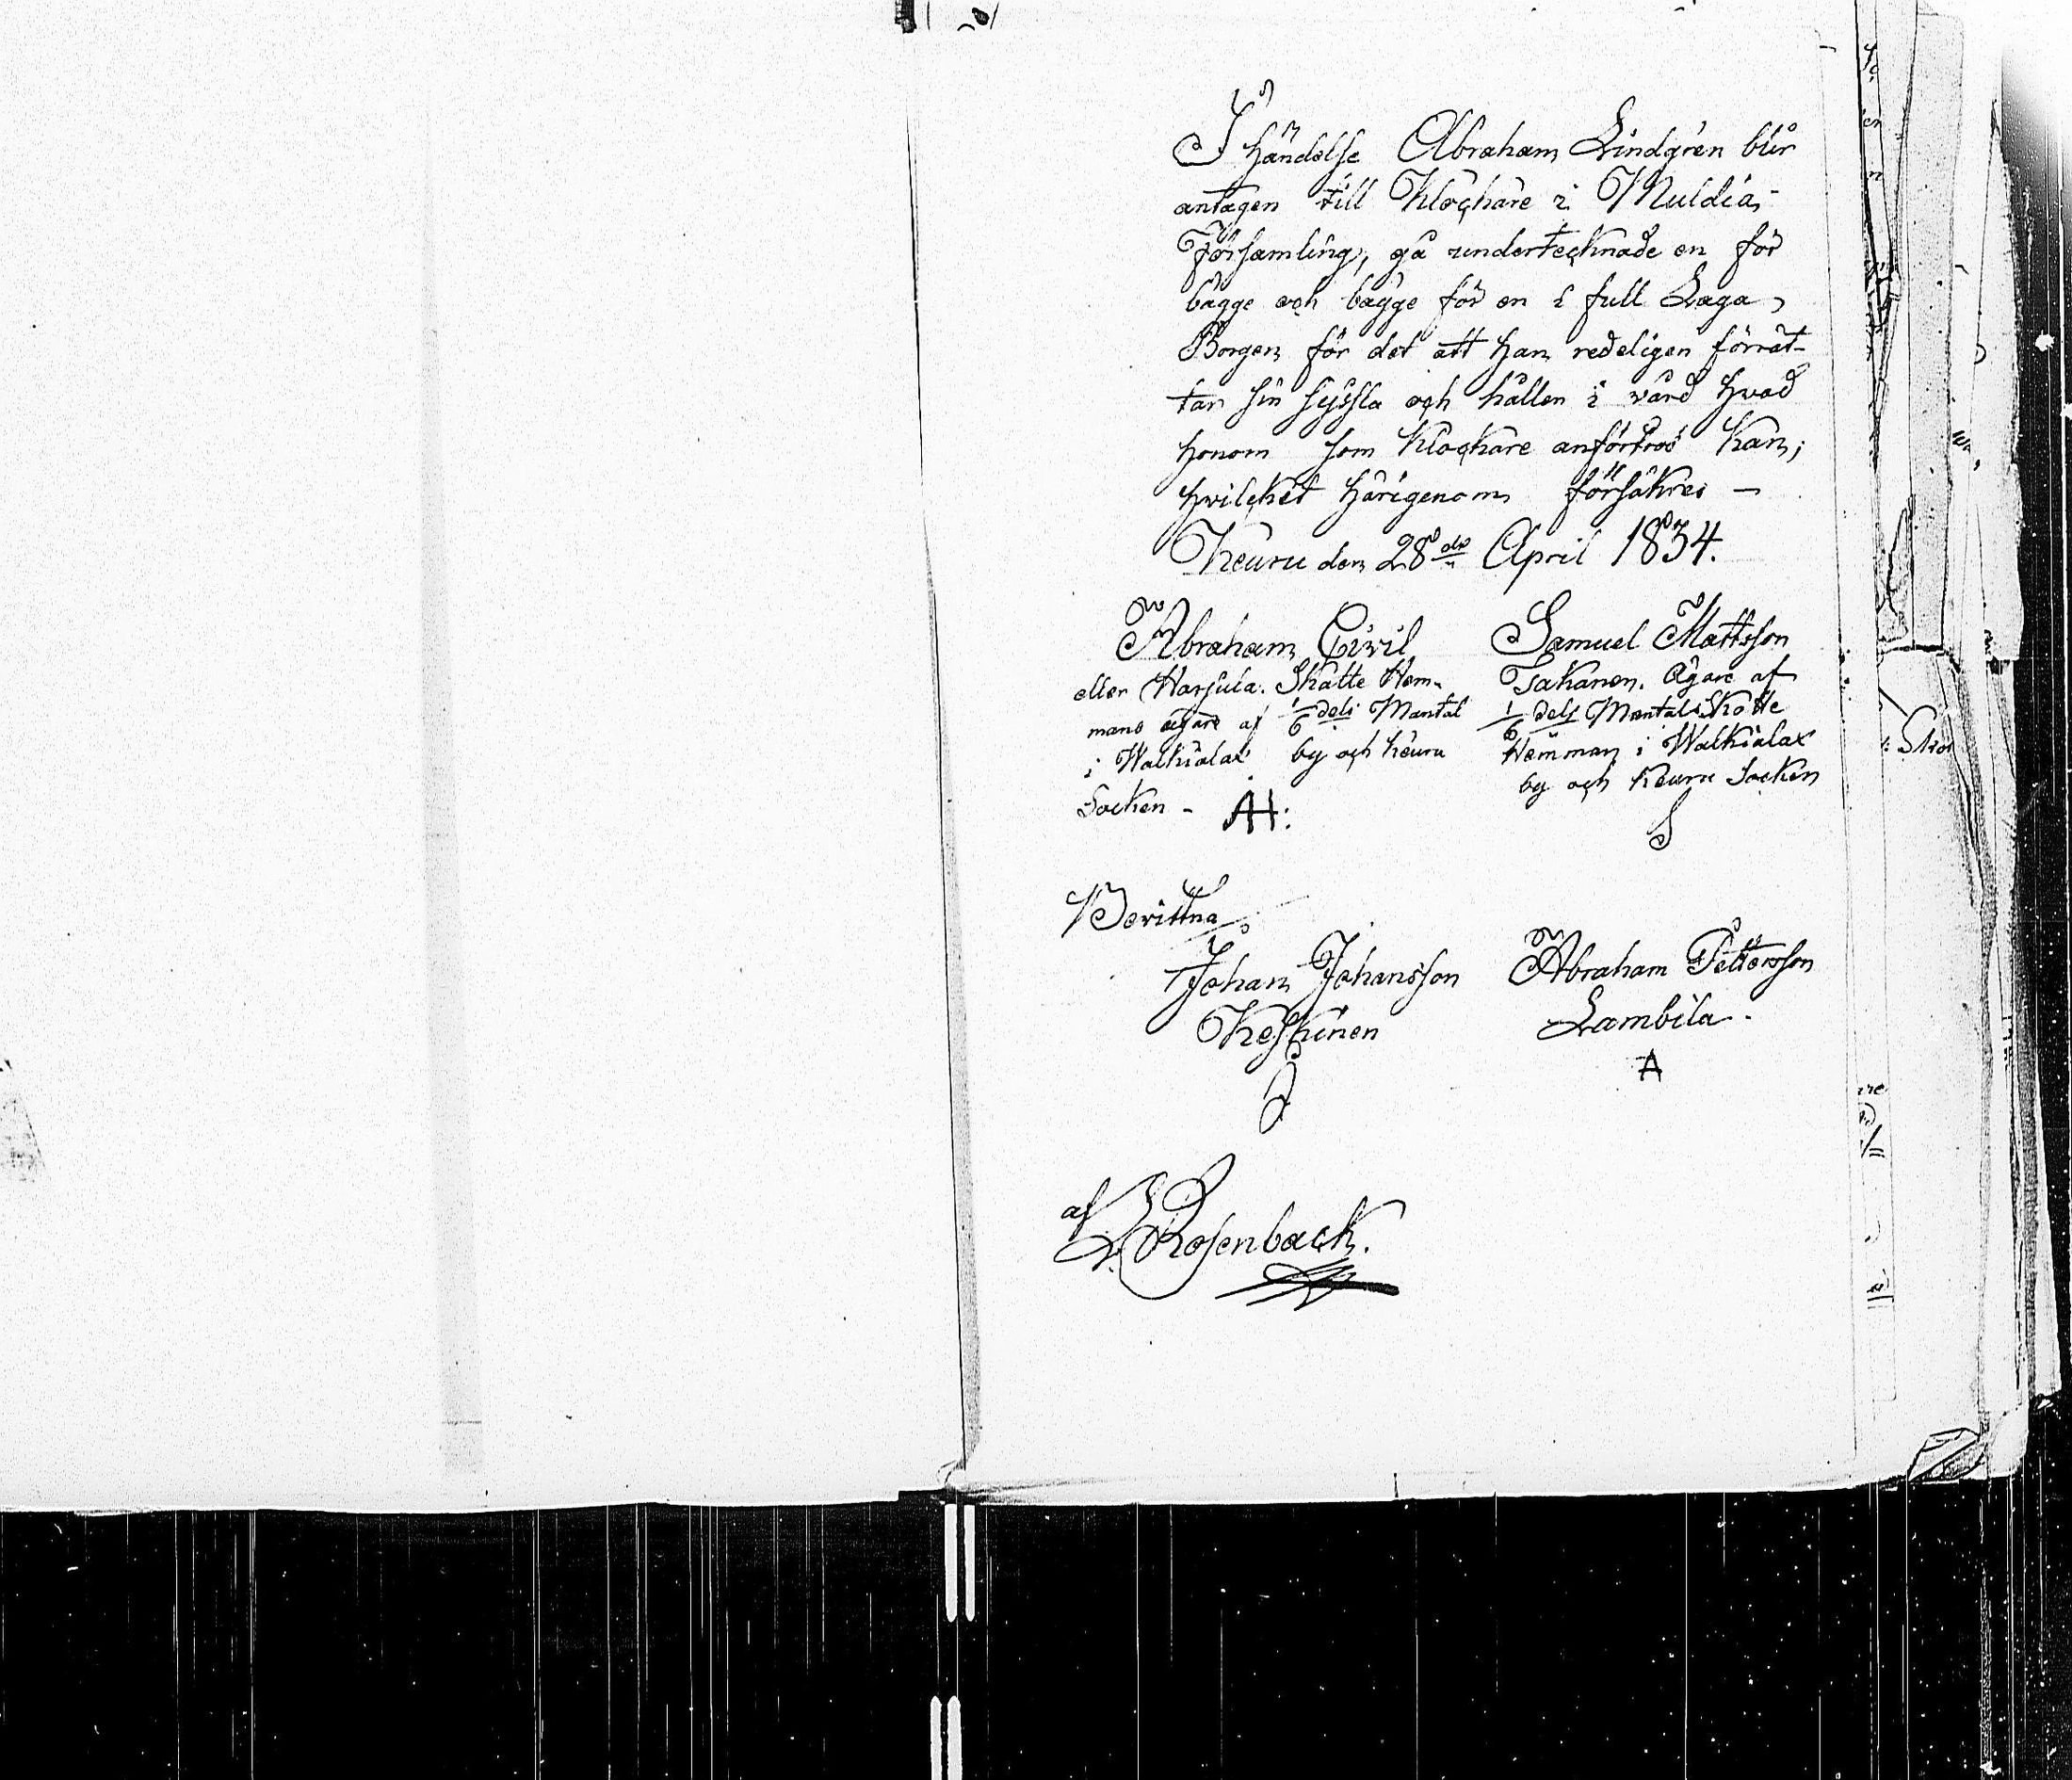 I händelse Abraham Lindgren blir
antagen till Klockare i Muldia
Församling, gå undertecknade en för
bägge och bägge för en i full Laga
Borgen för det att han redeligen förrät-
tar sin syssla och hållen i vård hvad
honom som Klockare anförtros kan;
hvilcket härigenom försäkras —
Keuru den 28de April 1834.
Abraham Civil
eller Harjula. Skatte Hem-
mans ägare af 1/6 dels Mantal
i Walkialax by och Keuru
Socken - AH:
Samuel Mattsson
Ägare af
1/6 dels Mantals Skatte
Hemman i Walkialax
by och Keuru Socken
S
Bevittna
Johan Johansson
Keskinen
J
Abraham Pettersson
Lambila.
A
af
Rosenback.